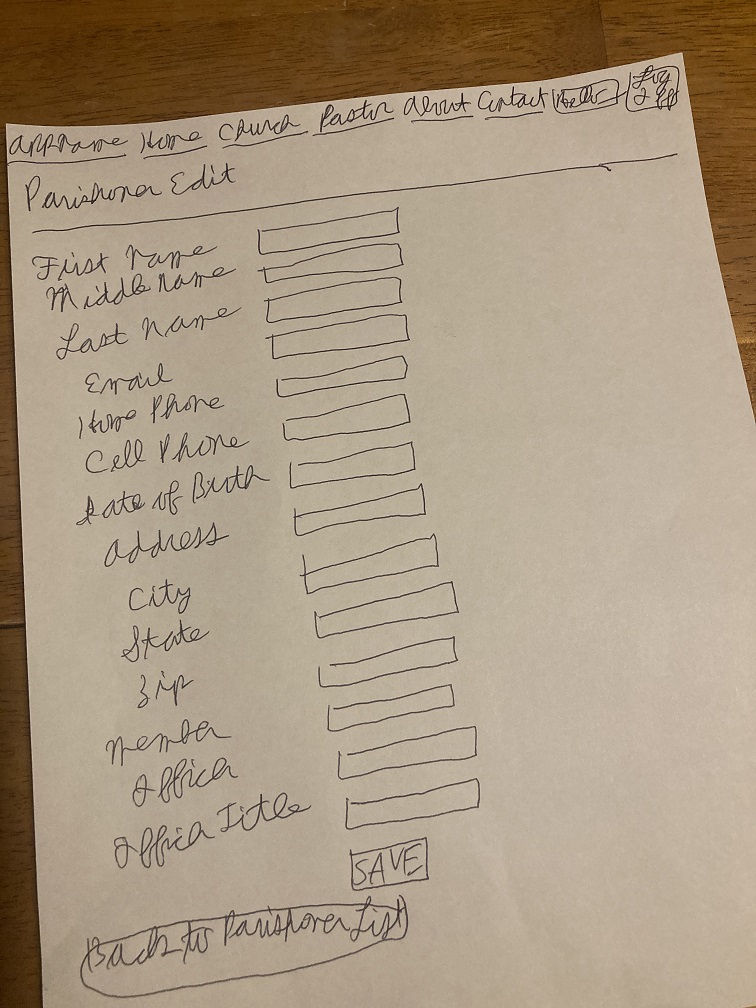 AppName Home Church Pastor About Contact Hello Log Off
Parishoner Edit
First Name
Middle Name
Last Name
Email
Home Phone
Cell Phone
Date of Birth
Address
City
State
Zip
Member
Officer
Officer Title
SAVE
Back to Parishoner List